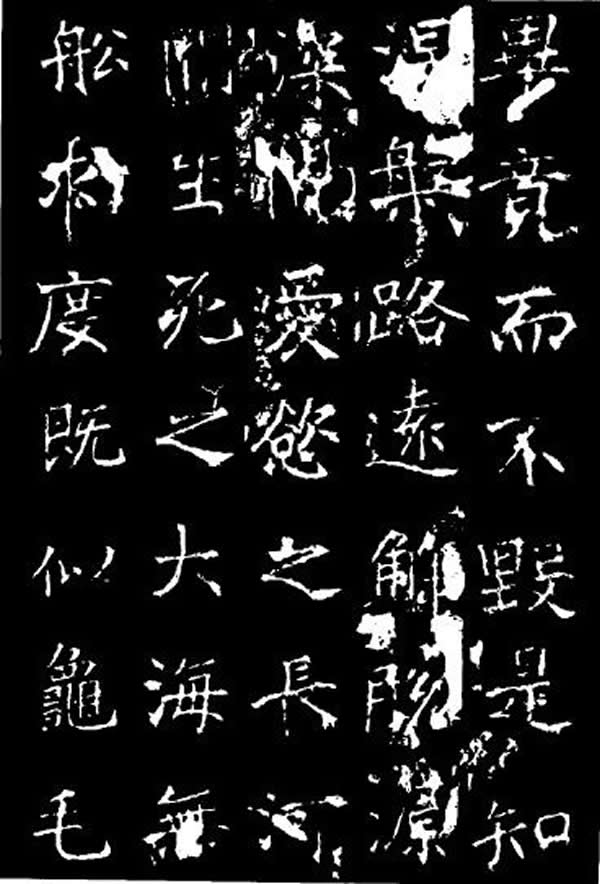 畢竟而不毀是知
涅槃路遠解脫源
深愛慾之長河
生死之大海無
舩度既似龜毛